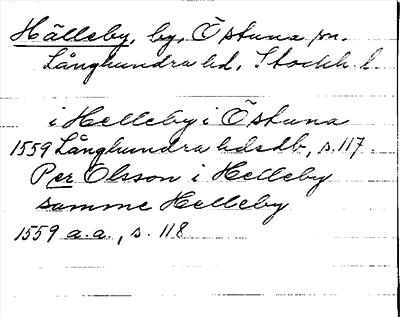 Hälleby, by, Östuna sn.
Långhundra hd, Stockh. l.
i Helleby i Östuna
1559 Långhundra hdsdb, s. 117.
Per Olsson i Helleby
samme Helleby
1559 a.a., s. 118